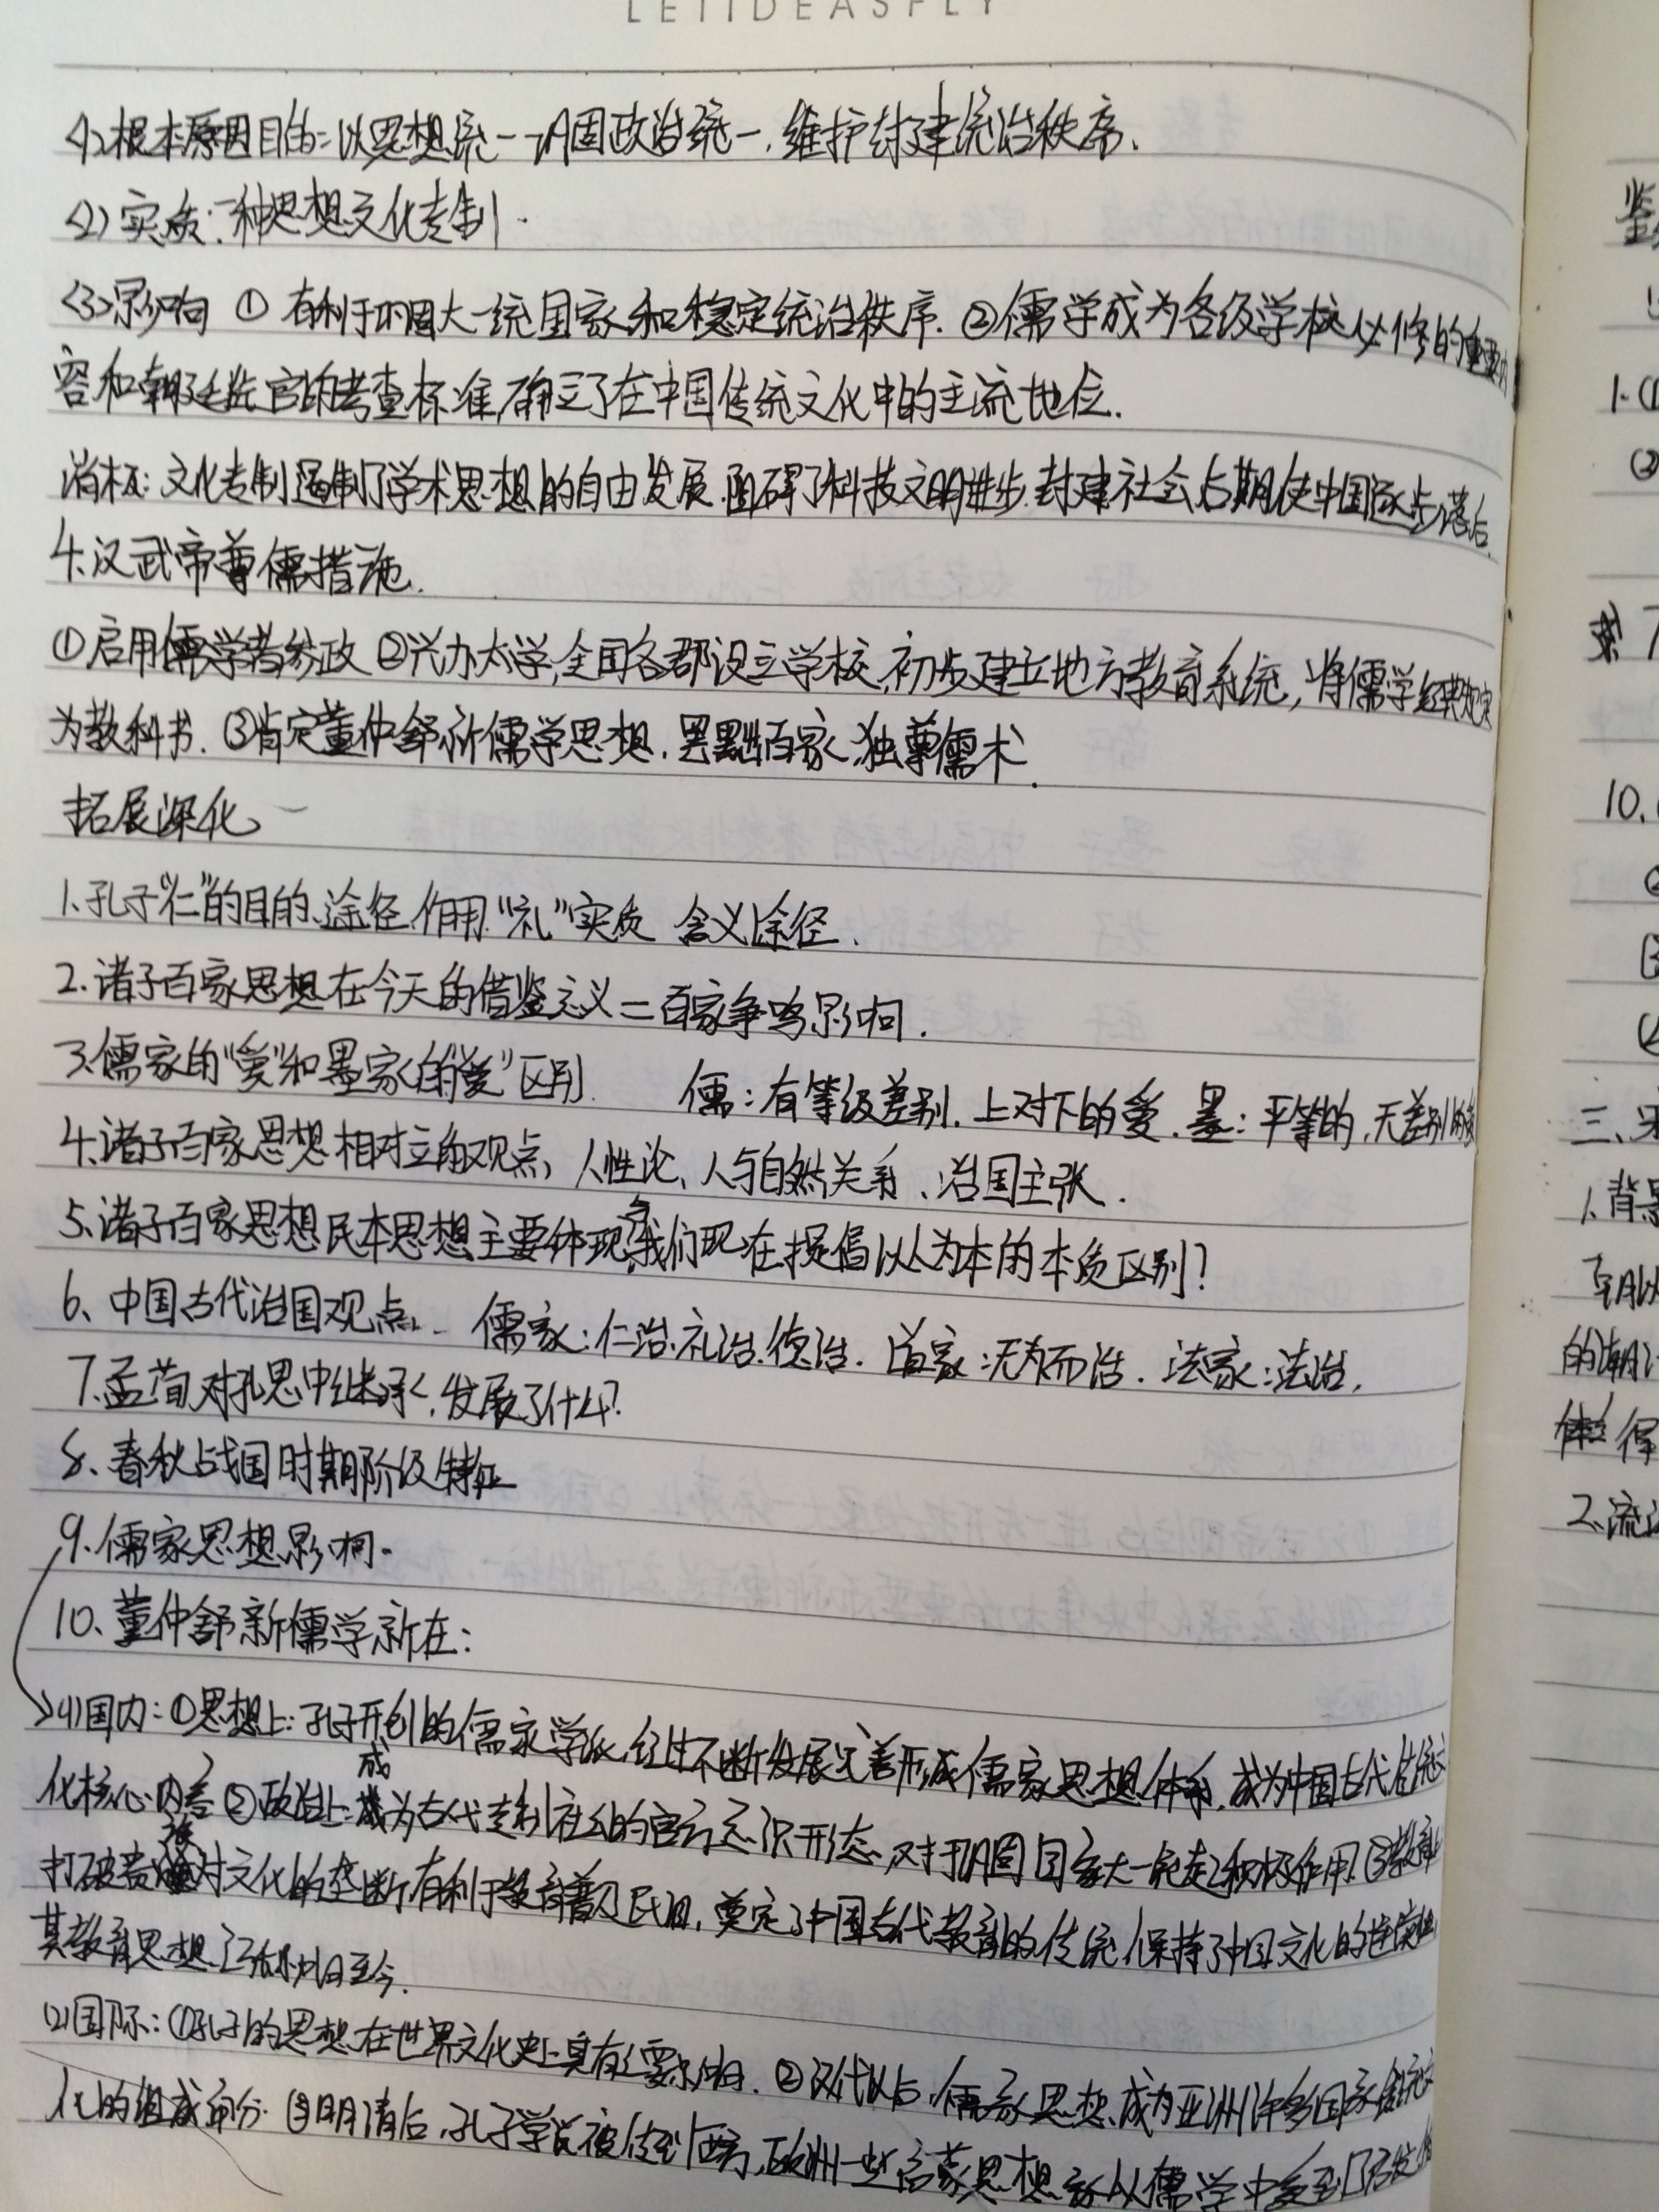 LETIDEASFLY
<1>根本原因目的:以思想统一巩固政治统一,维护封建统治秩序、
<2>实质:一种思想文化专制.
<3>影响 ①有利于巩固大一统国家和稳定统治秩序.②儒学成为各级学校必修的重要内
容和朝廷选官的考查标准,确立了在中国传统文化中的主流地位.
消极:文化专制遏制了学术思想的自由发展.阻碍了科技文明进步.封建社会后期使中国逐步落后.
4.汉武帝尊儒措施.
①启用儒学者参政 ②兴办太学,全国各郡设立学校,初步建立地方教育系统,将儒学经典规定
为教科书.③肯定董仲舒新儒学思想.罢黜百家,独尊儒术.
拓展深化
1.孔子“仁”的目的、途径、作用.“礼”实质 含义途径、
2.诸子百家思想在今天的借鉴意义=百家争鸣影响.
3.儒家的“爱”和墨家的“爱”区别. 儒:有等级差别.上对下的爱.墨:平等的,无差别的爱
4.诸子百家思想相对立的观点,人性论、人与自然关系、治国主张.
5、诸子百家思想民本思想主要体现,与我们现在提倡以人为本的本质区别?
6、中国古代治国观点. 儒家:仁治.礼治.德治. 道家:无为而治. 法家:法治,
7.孟荀对孔思中继承、发展了什么?
8、春秋战国时期阶级特征
9.儒家思想影响.
10、董仲舒新儒学新在:
(1)国内:①思想上:孔子开创的儒家学派,经过不断发展完善形成儒家思想体系,成为中国古代传统文
化核心内容②政治上:成为古代专制社会的官方意识形态,对于巩固国家大一统起积极作用.③教育上
打破贵族对文化的垄断,有利于教育普及民间,奠定了中国古代教育的传统,保持了中国文化的连续性
其教育思想
(2)国际:①孔子的思想在世界文化史上具有重要影响.②汉代以后,儒家思想成为亚洲许多国家传统文
化的组成部分.③明清后,孔子学说被传到西方,欧洲一些启蒙思想家从儒学中受到
鉴
1.
10.
三、宋
1.背景
的
得
2.流